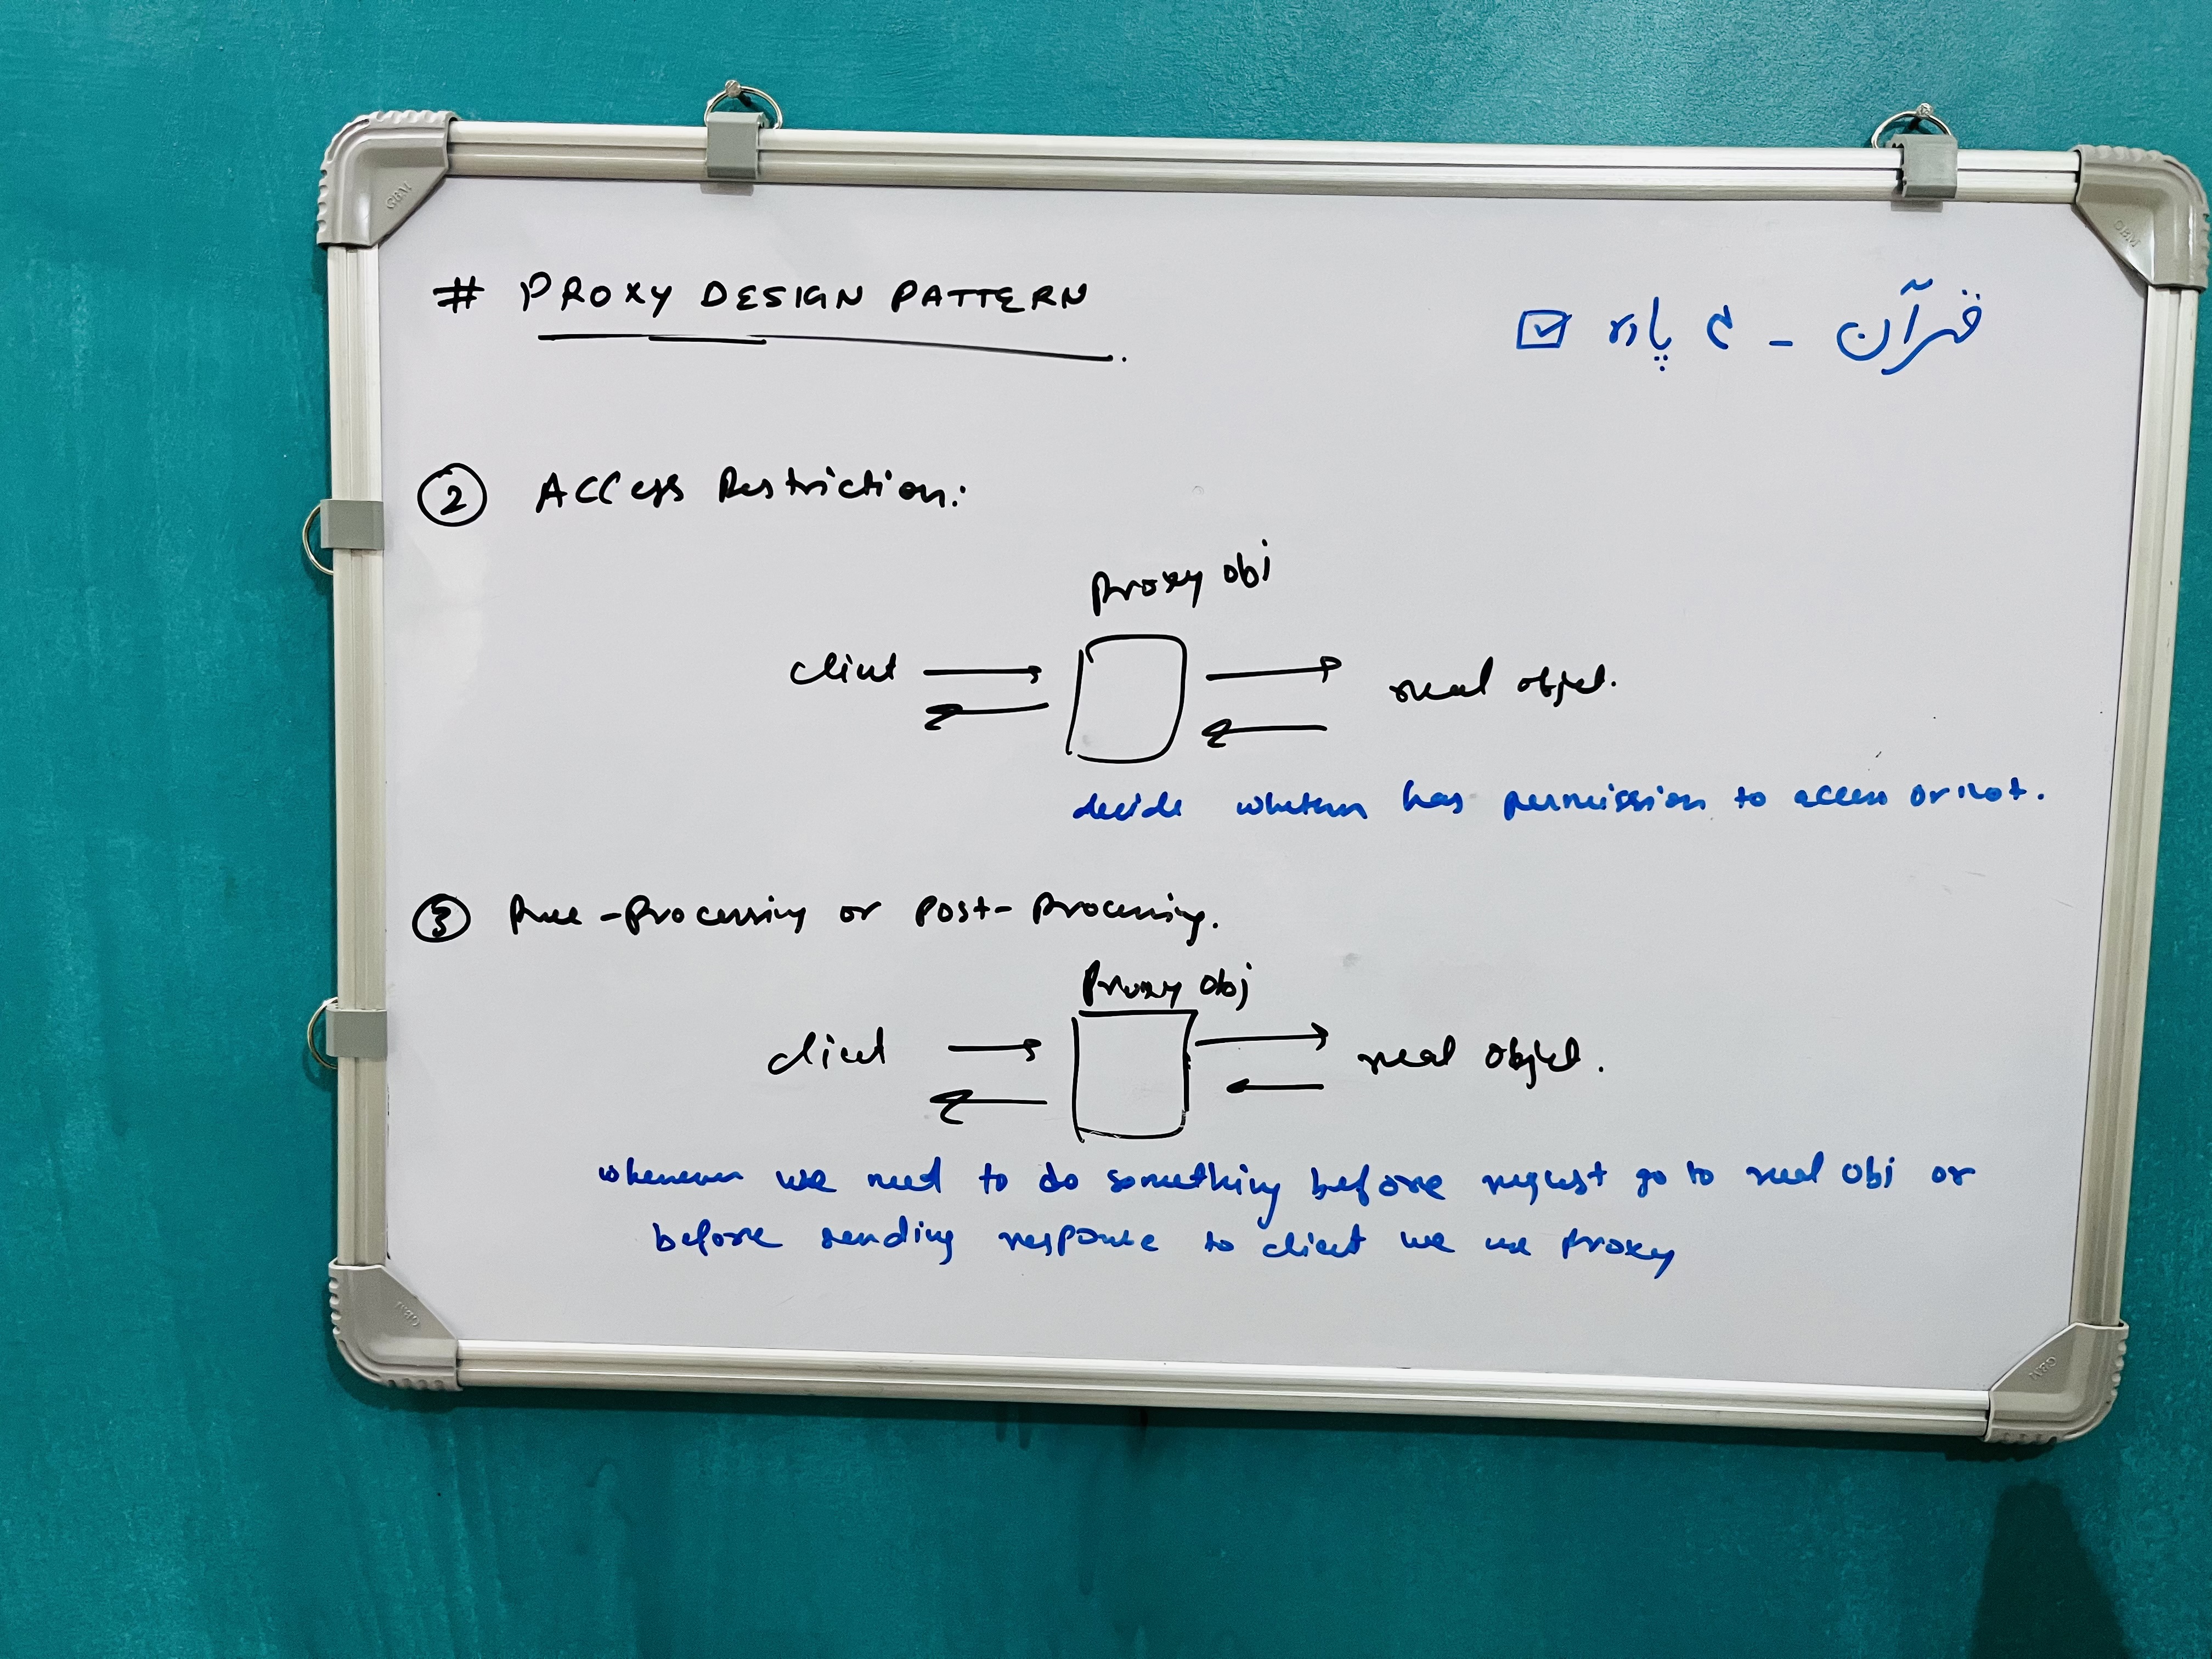 # PROXY DESIGN PATTERN
قرآن - ۴ پارہ ☑
② Access Restriction:
Proxy obj
client → → real object.
decide whether has permission to access or not.
③ Pree-Processing or Post-Processing.
Proxy Obj
client → → real Object.
whenever we need to do something before request go to real obj or
before sending response to client we use Proxy
GBM
GBM
GBM
GBM